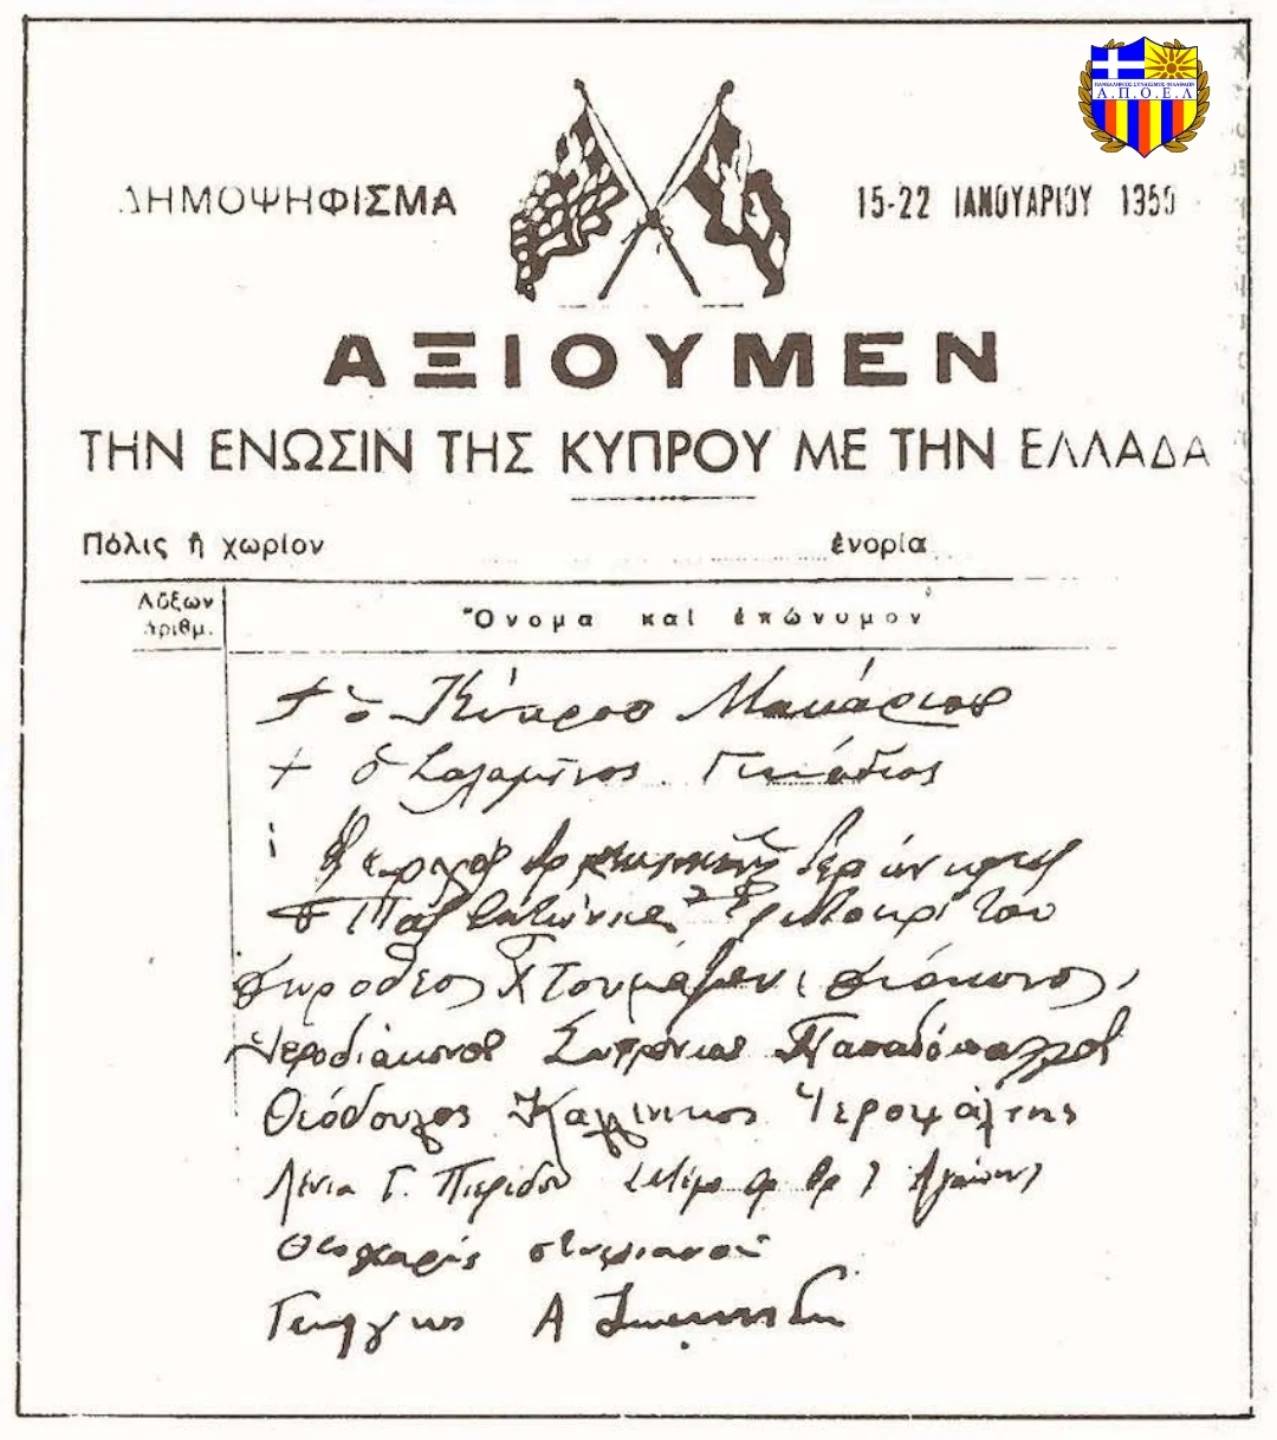 Α.Π.Ο.Ε.Λ
ΔΗΜΟΨΗΦΙΣΜΑ
15-22 ΙΑΝΟΥΑΡΙΟΥ 1950
ΑΞΙΟΥΜΕΝ
ΤΗΝ ΕΝΩΣΙΝ ΤΗΣ ΚΥΠΡΟΥ ΜΕ ΤΗΝ ΕΛΛΑΔΑ
Πόλις ἢ χωρίον ἐνορία
Αὔξων ἀριθμ.
Ὄνομα καὶ ἐπώνυμον
+ ὁ Κύπρου Μακάριος
+ ὁ Σαλαμῖνος Γεννάδιος
Δωρόθεος Χ"Τουμάζου διάκονος
Ἱεροδιάκονος Σωφρόνιος Παπαδόπουλλος
Θεόδουλος Καλλίνικος Ἱεροψάλτης
Λένια Γ. Πιερίδου
Θεοχάρης Στυλιανοῦ
Γεώργιος Α